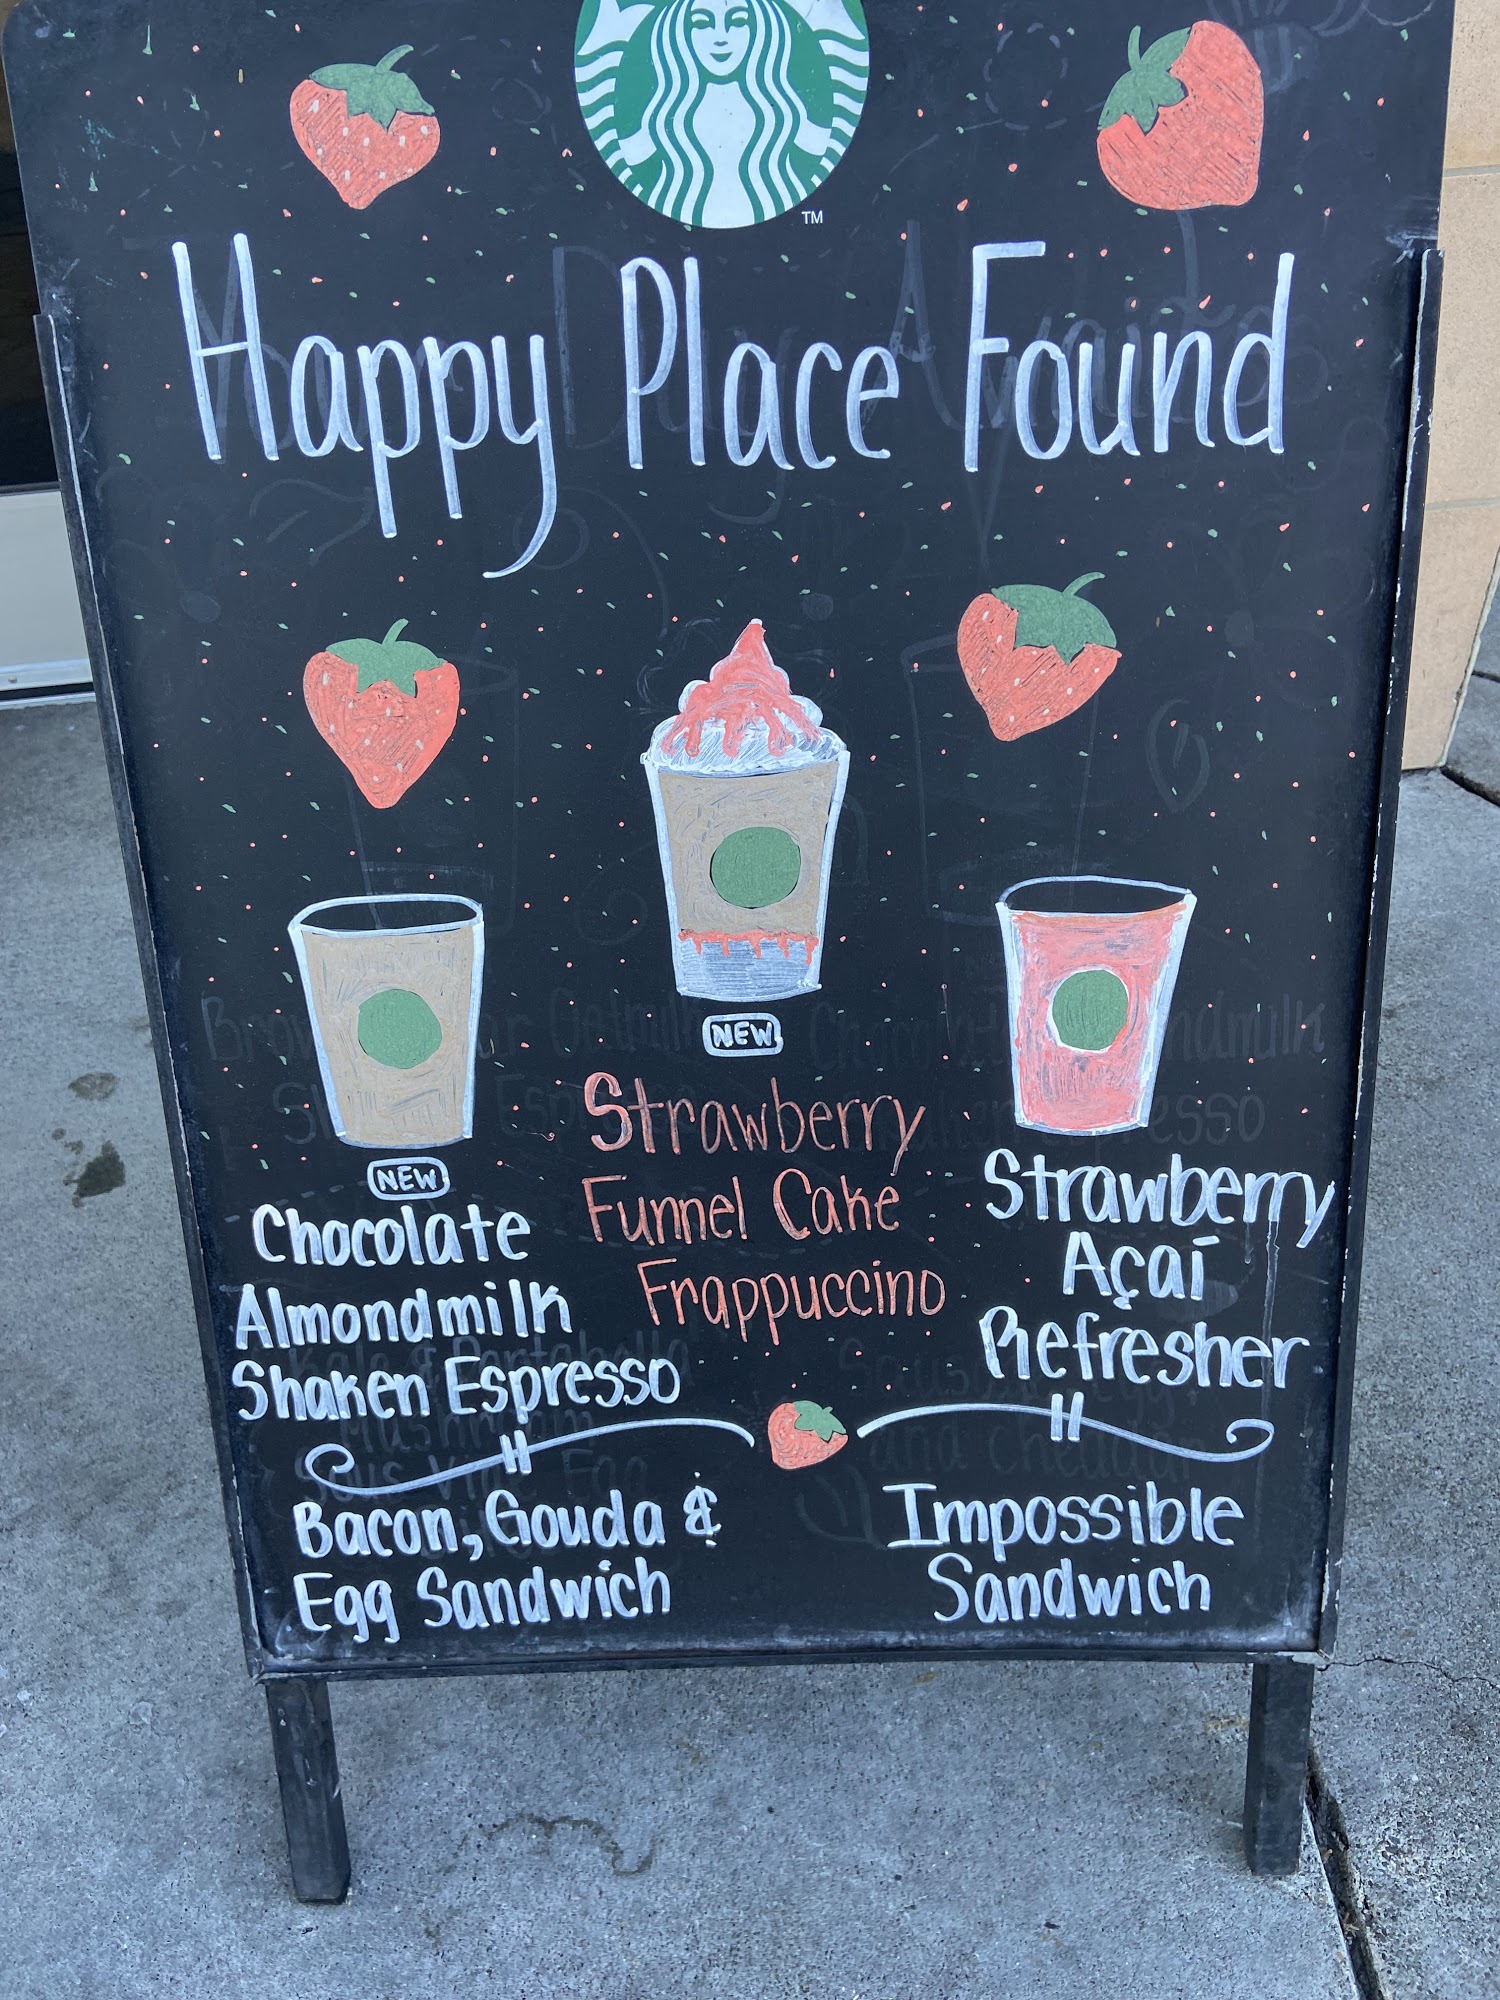 TM
Happy Place Found
NEW
Chocolate
Almondmilk
Shaken Espresso
NEW
Strawberry
Funnel Cake
Frappuccino
Strawberry
Açaí
Refresher
Bacon, Gouda &
Egg Sandwich
Impossible
Sandwich